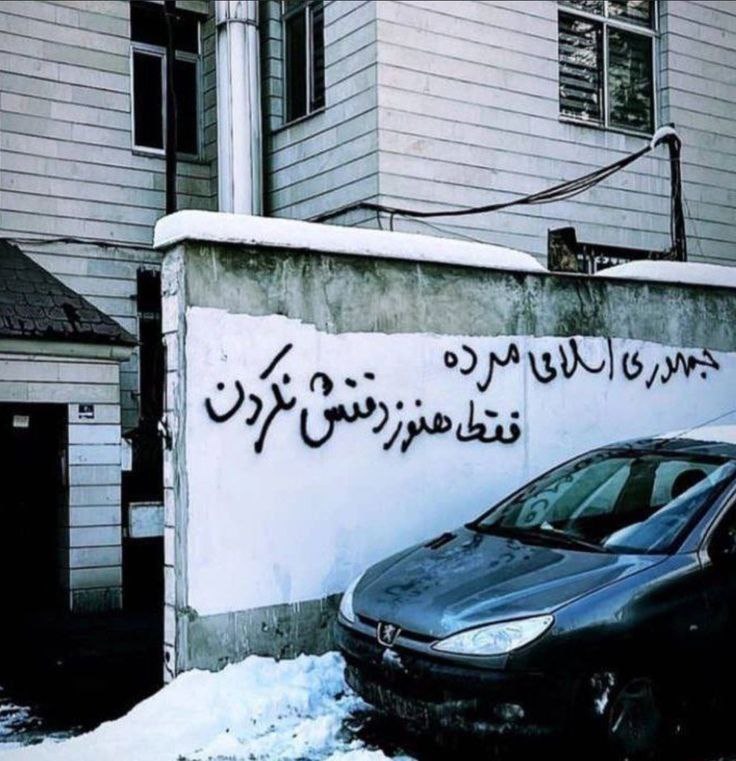 جمهوری اسلامی مرده
فقط هنوز دفنش نکردن